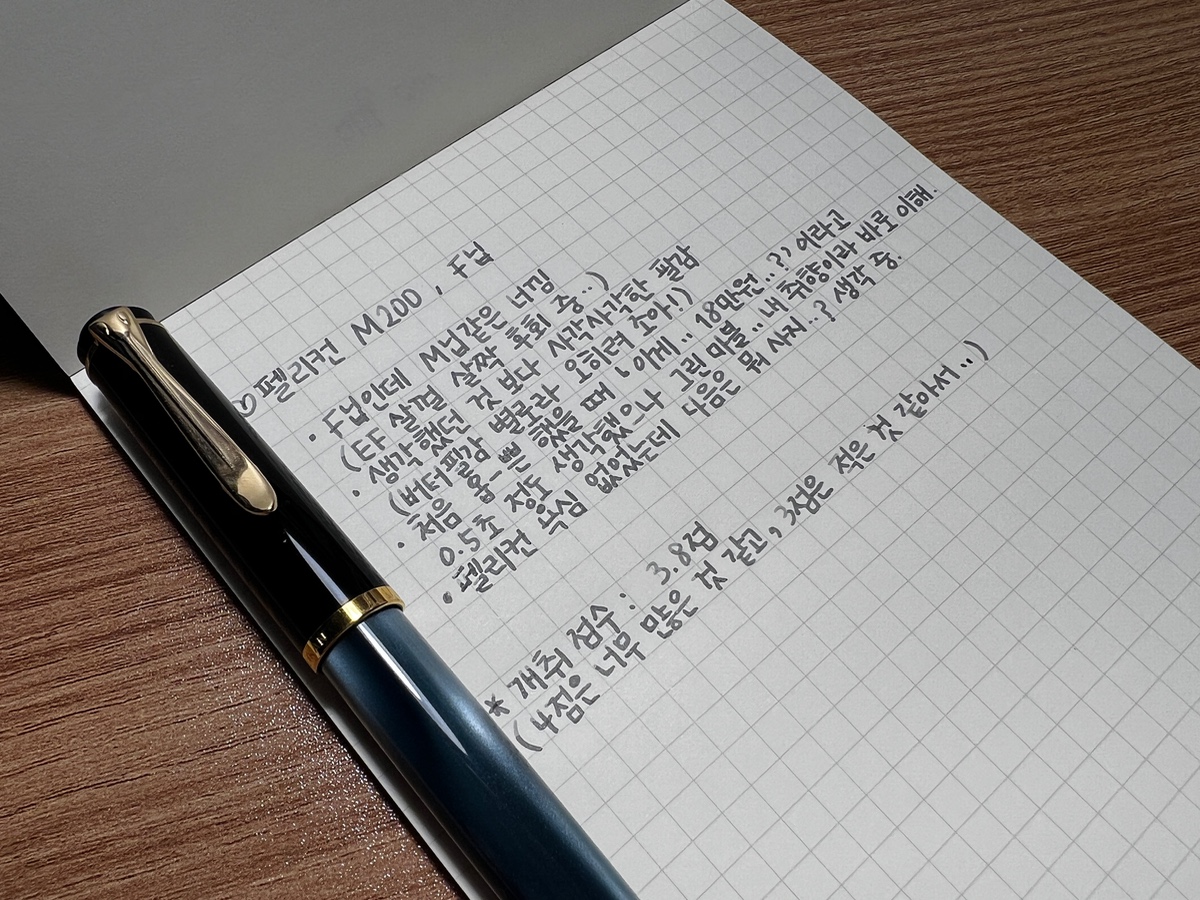 ♡펠리컨 M200, F닙
· F닙인데 M닙같은 너낌
(EF 살껄 살짝 후회 중..)
· 생각했던 것 보다 사각사각한 필감
(버터필감 별로라 오히려 조아!)
· 처음 홉-쁜 했을 때 '이게.. 18만원..??'이라고
0.5초 정도 생각했으나 그린 마블.. 내 취향이라 바로 이해.
· 펠리컨 욕심 없었는데 다음은 뭐 사지..? 생각 중.
* 개취 점수 : 3.8점
(4점은 너무 많은 것 같고, 3점은 적은 것 같아서..)